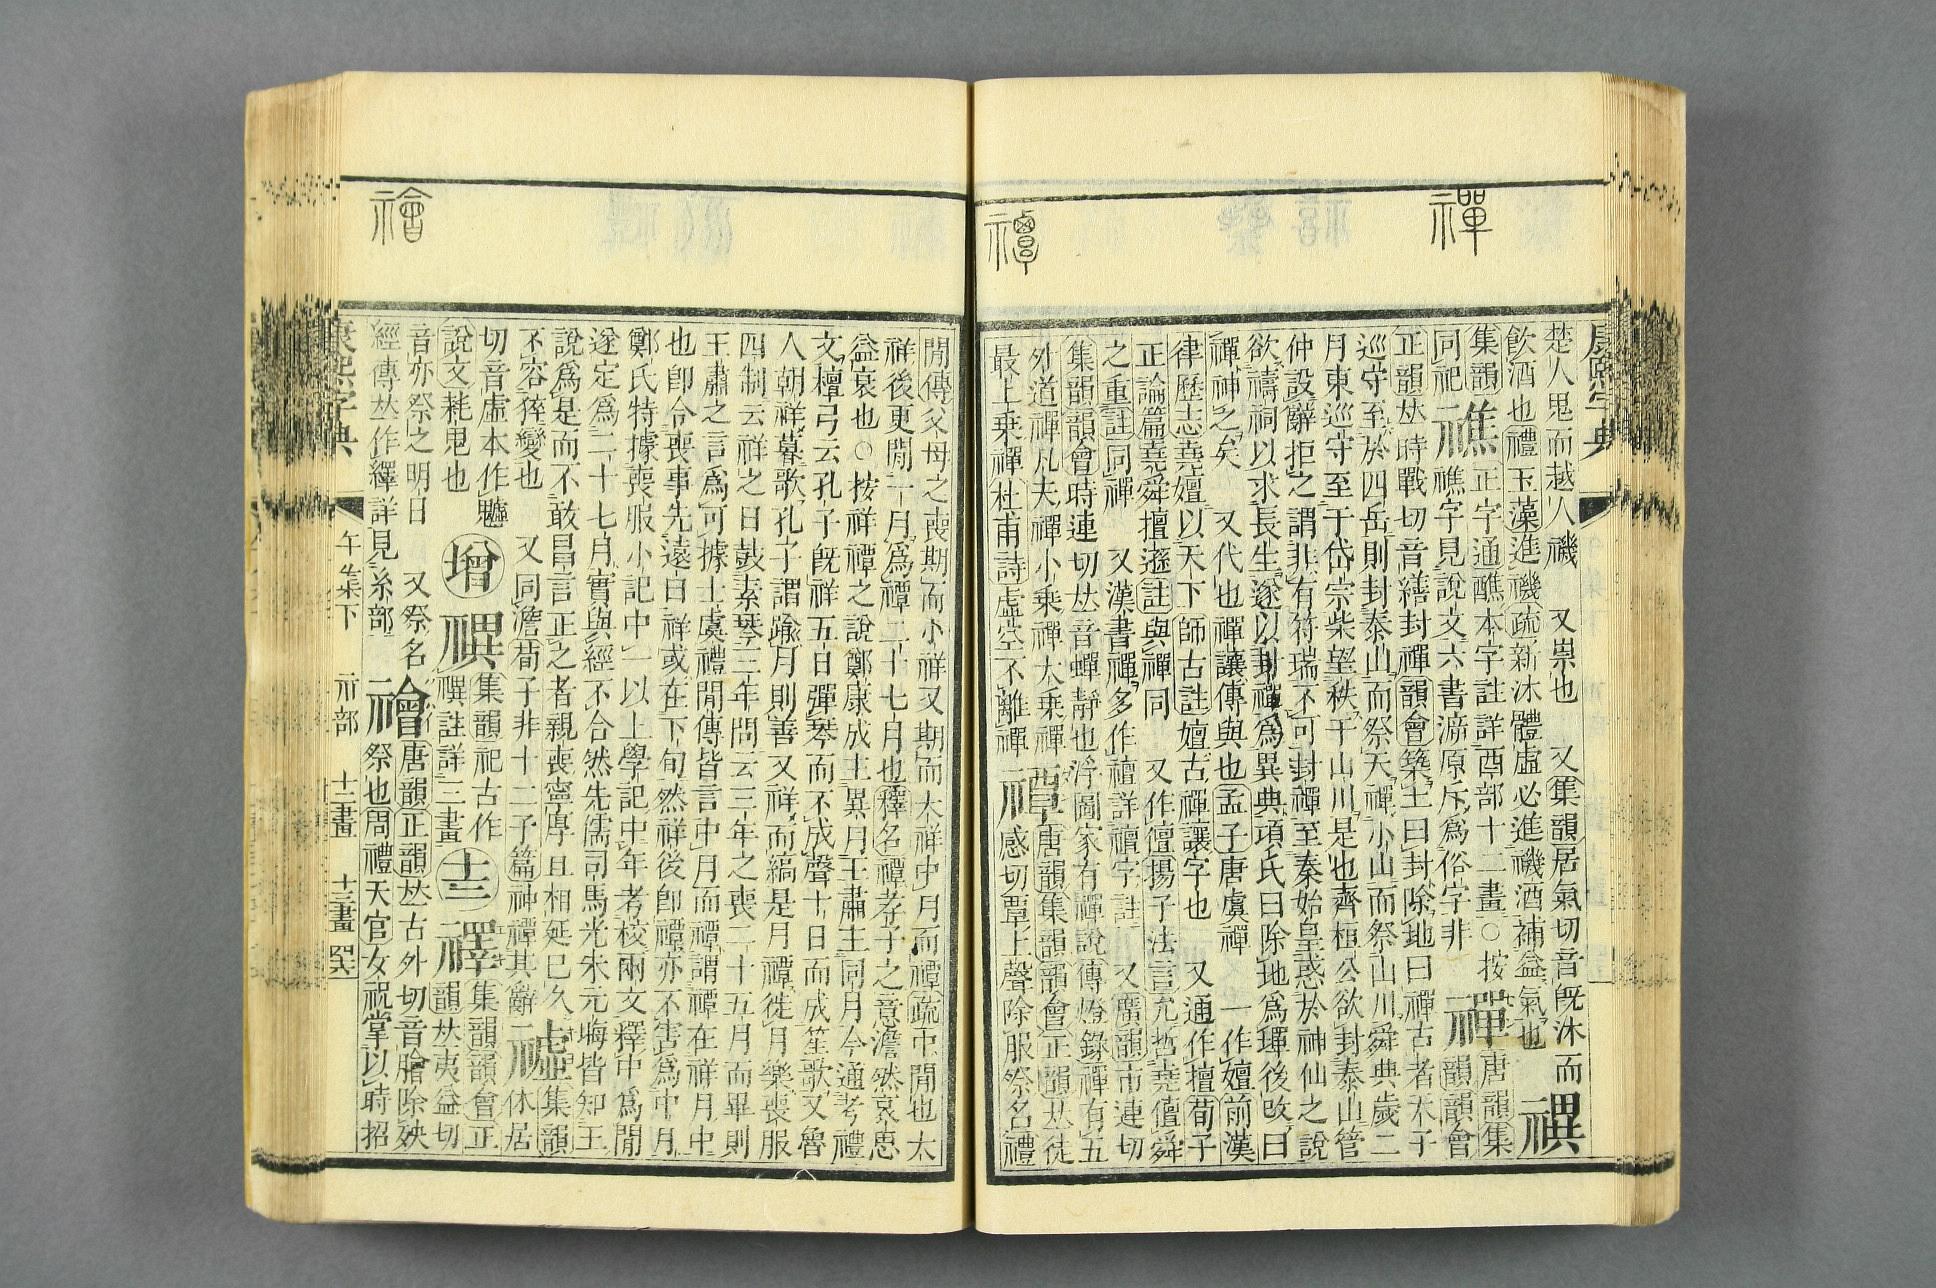 禪
康熙字典
楚人鬼而越人禨 又祟也 又集韻居氣切音旣沐而
飲酒也禮玉藻進禨疏新沐體虛必進禨酒補益氣也
禩
集韻
同祀
𥛲
正字通醮本字註詳酉部十二畫○按
𥛲字見說文六書溯原斥爲俗字非
禪
唐韻集
韻韻會
正韻𠀤時戰切音繕封禪韻會築土曰封除地曰禪古者天子
巡守至於四岳則封泰山而祭天禪小山而祭山川舜典歲二
月東巡守至于岱宗柴望秩于山川是也齊桓公欲封泰山管
仲設辭拒之謂非有符瑞不可封禪至秦始皇惑於神仙之說
欲禱祠以求長生遂以封禪爲異典項氏曰除地爲墠後攺曰
禪神之矣 又代也禪讓傳與也孟子唐虞禪 一作嬗前漢
律歷志堯嬗以天下師古註嬗古禪讓字也 又通作擅荀子
正論篇堯舜擅遜註與禪同 又作儃揚子法言允哲堯儃舜
之重註同禪 又漢書禪多作襢詳襢字註 又廣韻市連切
集韻韻會時連切𠀤音蟬靜也浮圖家有禪說傳燈錄禪有五
外道禪凡夫禪小乗禪大乗禪
最上乗禪杜甫詩虛空不離禪
禫
唐韻集韻韻會正韻𠀤徒
感切覃上聲除服祭名禮
禫
閒傳父母之喪期而小祥又期而大祥中月而禫疏中閒也大
祥後更閒一月爲禫二十七月也釋名禫孝子之意澹然哀思
益衰也○按祥禫之說鄭康成主異月王肅主同月今通考禮
文檀弓云孔子旣祥五日彈琴而不成聲十日而成笙歌又魯
人朝祥暮歌孔子謂踰月則善又祥而縞是月禫徙月樂喪服
四制云祥之日鼓素琴三年問云三年之喪二十五月而畢則
王肅之言爲可據士虞禮閒傳皆言中月而禫謂禫在祥月中
也卽今喪事先遠日祥或在下旬然祥後卽禫亦不害爲中月
鄭氏特據喪服小記中一以上學記中年考校兩文釋中爲閒
遂定爲二十七月實與經不合然先儒司馬光朱元晦皆知王
說爲是而不敢昌言正之者親喪寧厚且相延已久
不容猝變也 又同澹荀子非十二子篇神禫其辭
𥛚
集韻
休居
切音虛本作魖
說文耗鬼也
增
禩
集韻祀古作
禩註詳三畫
十三
禬
禬
襗
集韻韻會正
韻𠀤夷益切
音亦祭之明日 又祭名
經傳𠀤作繹詳見糸部
禬
唐韻正韻𠀤古外切音膾除殃
祭也周禮天官女祝掌以時招
康熙字典
午集下 示部 十二畫 十三畫